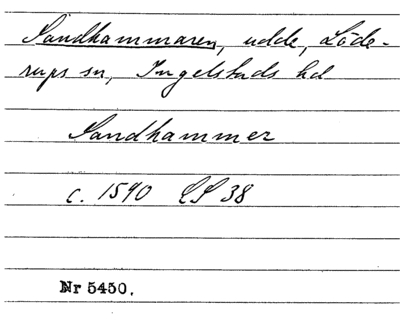 Sandhammaren, udde, Löde-
rups sn, Ingelstads hd
Sandhammer
c. 1590 LS 38
Nr 5450.